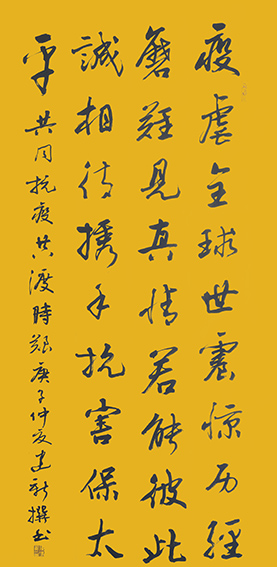 疫虐全球世震惊历經
磨難見真情若能彼此
誠相待携手抗害保太
平
共同抗疫共渡時艱庚子仲夏建新撰書